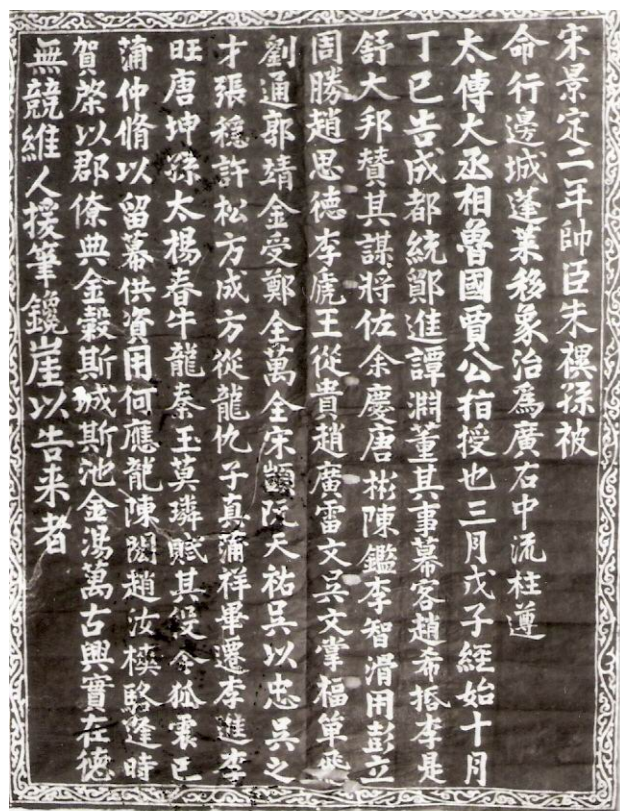 宋景定二年帥臣朱禩孫被
命行邊城蓬莱移象治爲廣右中流柱遵
太傅大丞相魯國賈公指授也三月戊子經始十月
丁巳告成都統鄭進譚淵董其事幕客趙希抵李是
舒大邦贊其謀將佐余慶唐彬陳鑑李智滑用彭立
周勝趙思德李虎王從貴趙廣雷文吴文掌福单
劉通郭靖金受鄭全萬全宋顯阮天祐吴以忠吴之
才張穩許松方成方從龍仇子真蒲祥畢遷李進李
旺唐坤孫太楊春牛龍秦玉莫璘賦其役令狐震巳
蒲仲脩以留幕供資用何應龍陳閎趙汝楧駱逢時
賀棨以郡僚典金穀斯城斯池金湯萬古興實在德
無競維人援筆鑱崖以告来者